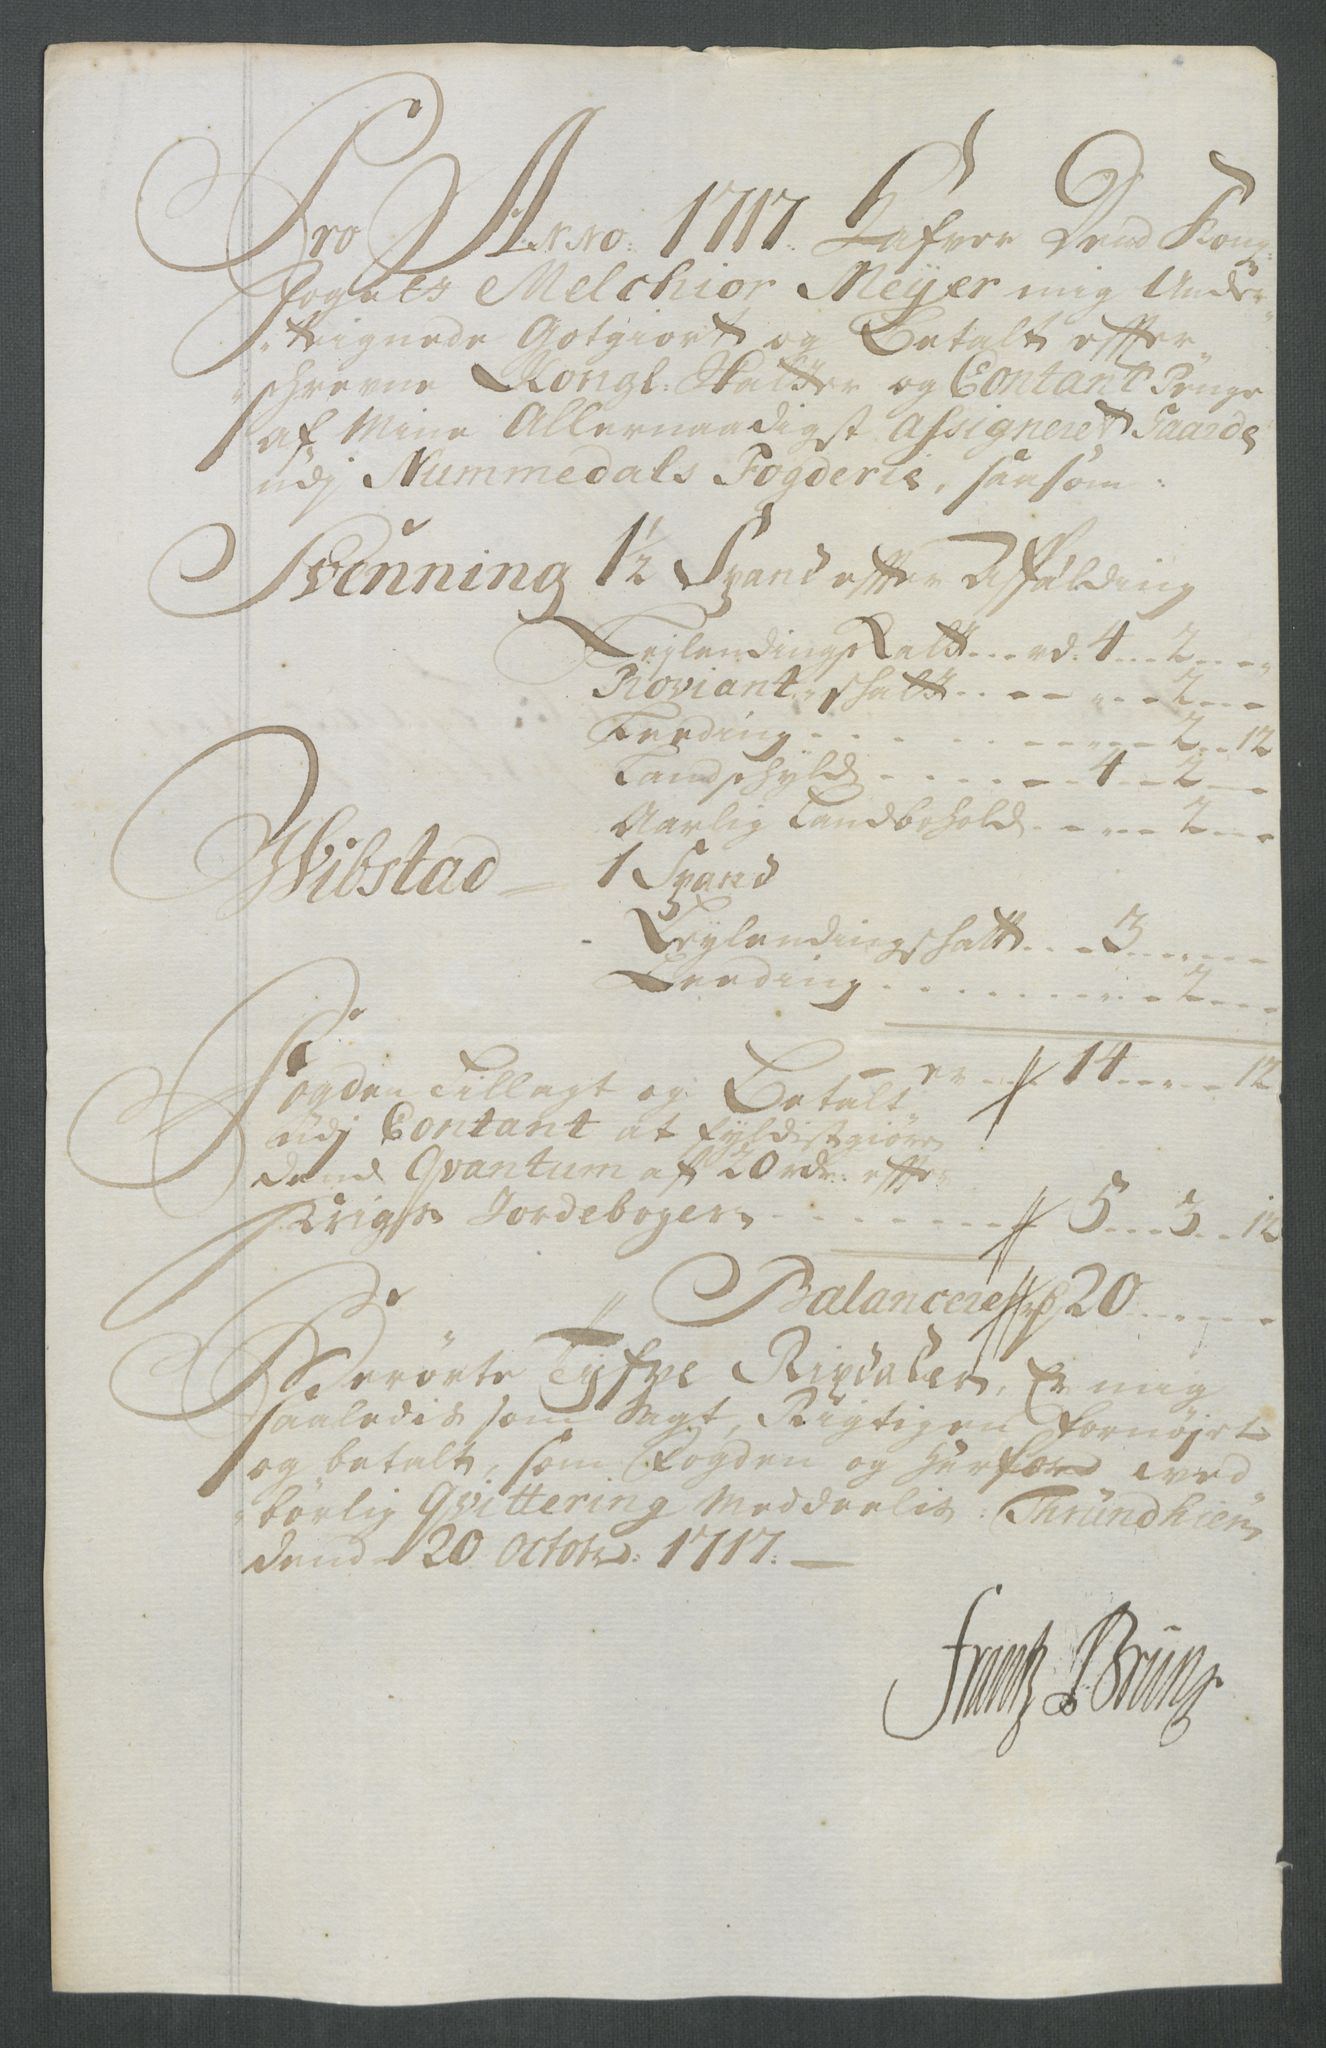 Pro Anno: 1717. Hafver Dend Kong:
fogets Melchior Meÿer mig Under-
-tteignede Gotgiort og Betalt effter-
-schrevne Kongl: Skatter og Contant Penge
af Mine Allernaadigst Assigneret Gaarde
udj Nummedals Fogderie, saasom:
Svenning 1½ Spand effter Affälding
Leylendings Katt ... rd. 4 .. 2 ...
Proviant-schatt ... 2 ...
Leeding ... 2 .. 12
Landschyld ... 4 .. 2 ...
Aarlig Landbohold ... 2 ...
Wibstad 1 Spand
Leylendingschatt ... 3 ...
Leeding ... 2 ...
er ... 14 ... 12
Fogden Tillagt og Betalt
udj Contant at fyldistgiöre
dend Qvantum af 20 rdr. effter
Krigs Jordebogen ... 5 .. 3 .. 12
Balancerer 20 ...
Berörte Tÿfve Rixdaler, Er mig
saaledis som Sagt, Rigtigen fornöjet
og betalt, som Fogden og herfor ved
-börlig Qvittering Meddeelis: Thrundhiem
dend 20 Octobr: 1717.
Frantz Brüns